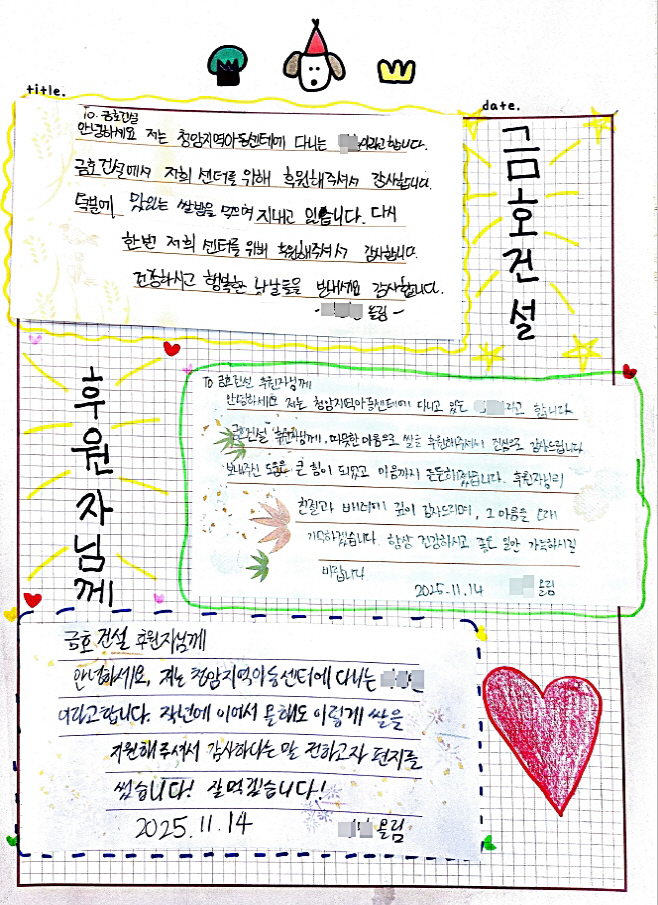 title.
date.
금호건설
후원자님께
To. 금호건설
안녕하세요 저는 청암지역아동센터에 다니는 이라고합니다.
금호건설에서 저희 센터를 위해 후원해주셔서 감사합니다.
덕분에 맛있는 쌀밥을 먹으며 지내고 있습니다. 다시
한번 저희 센터를 위해 후원해주셔서 감사합니다.
건강하시고 행복한 나날들을 보내세요 감사합니다.
- 올림 -
To 금호건설 후원자님께
안녕하세요 저는 청암지역아동센터에 다니고 있는 라고 합니다
금호건설 후원자님께, 따뜻한 마음으로 쌀을 후원해주셔서 진심으로 감사드립니다
보내주신 도움은 큰 힘이 되었고 마음까지 든든해졌습니다. 후원자님의
친절과 배려에 깊이 감사드리며, 그 마음을 오래
기억하겠습니다. 항상 건강하시고 좋은 일만 가득하시길
바랍니다
2025.11.14 올림
금호건설 후원자님께
안녕하세요, 저는 청암지역아동센터에 다니는
이라고합니다. 작년에 이어서 올해도 이렇게 쌀을
지원해주셔서 감사하다는 말 전하고자 편지를
썼습니다! 잘먹겠습니다!
2025.11.14 올림